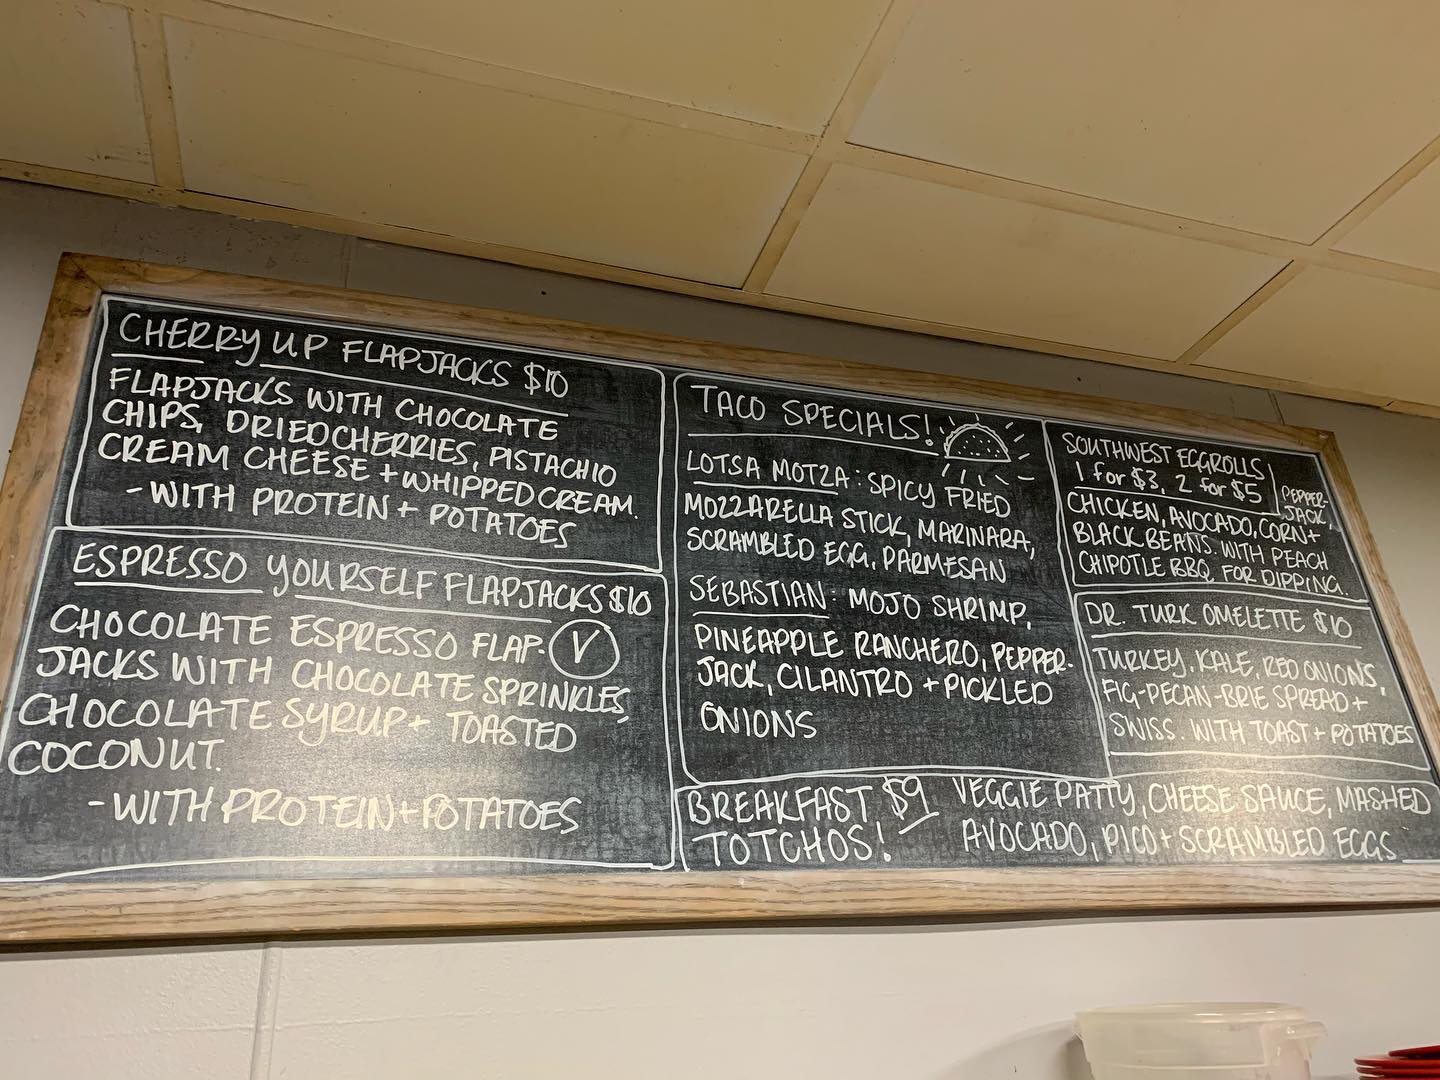 CHERRY UP FLAPJACKS $10
FLAPJACKS WITH CHOCOLATE
CHIPS, DRIED CHERRIES, PISTACHIO
CREAM CHEESE + WHIPPED CREAM.
- WITH PROTEIN + POTATOES
ESPRESSO YOURSELF FLAPJACKS $10
CHOCOLATE ESPRESSO FLAP- V
JACKS WITH CHOCOLATE SPRINKLES,
CHOCOLATE SYRUP + TOASTED
COCONUT.
- WITH PROTEIN + POTATOES
TACO SPECIALS!
LOTSA MOTZA: SPICY FRIED
MOZZARELLA STICK, MARINARA,
SCRAMBLED EGG, PARMESAN
SEBASTIAN: MOJO SHRIMP,
PINEAPPLE RANCHERO, PEPPER-
JACK, CILANTRO + PICKLED
ONIONS
SOUTHWEST EGGROLLS
1 for $3, 2 for $5
PEPPER-
JACK,
CHICKEN, AVOCADO, CORN +
BLACK BEANS. WITH PEACH
CHIPOTLE BBQ FOR DIPPING.
DR. TURK OMELETTE $10
TURKEY, KALE, RED ONIONS,
FIG-PECAN-BRIE SPREAD +
SWISS. WITH TOAST + POTATOES
BREAKFAST $9
TOTCHOS!
VEGGIE PATTY, CHEESE SAUCE, MASHED
AVOCADO, PICO + SCRAMBLED EGGS